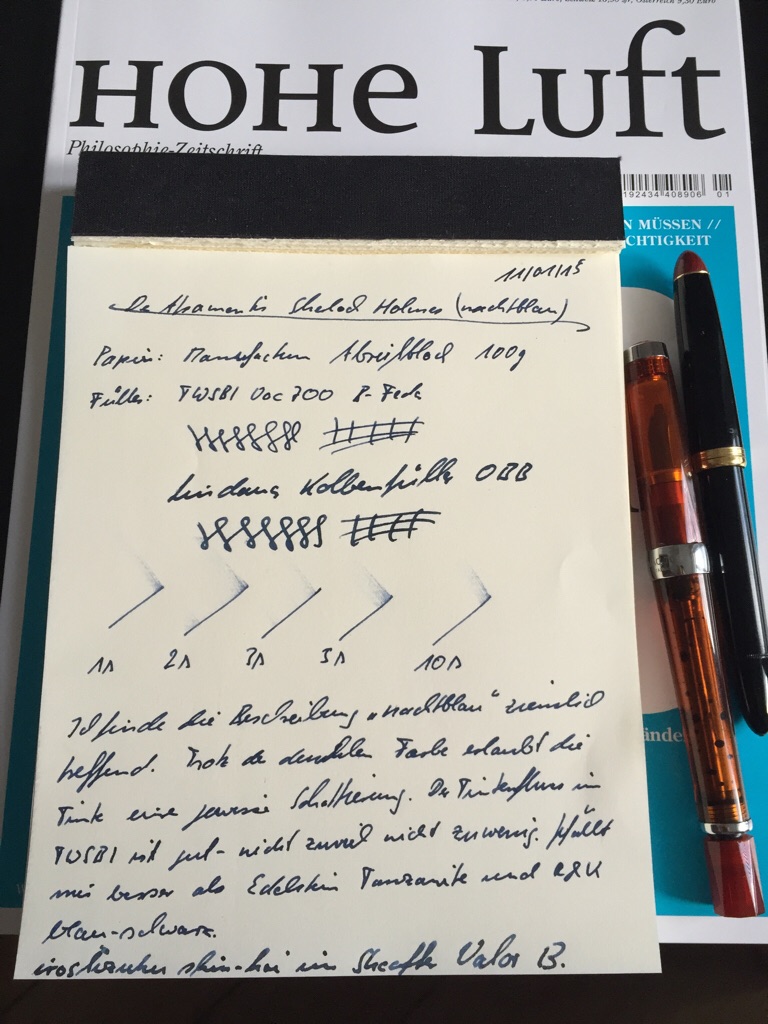 HOHE Luft
Philosophie-Zeitschrift
192434 408906 01
N MÜSSEN //
CHTIGKEIT
11/01/15
De Atramentis Sherlock Holmes (nachtblau)
Papier: Manufactum Abreißblock 100g
Füller: TWSBI Vac 700 B-Feder
Lindauer Kolbenfüller OBB
1s 2s 3s 5s 10s
Ich finde die Beschreibung „nachtblau“ ziemlich
treffend. Trotz der dunklen Farbe erlaubt die
Tinte eine gewisse Schattierung. Der Tintenfluss im
TWSBI ist gut - nicht zuviel nicht zuwenig. Gefällt
mir besser als Edelstein Tanzanite und R&K
blau-schwarz.
iroshizuku shin-kai im Sheaffer Valor B.
ände